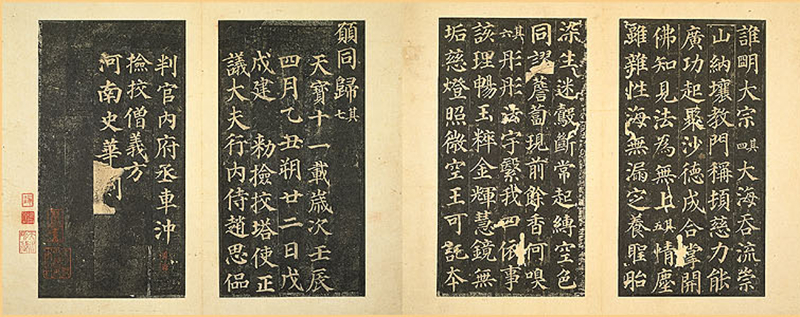 誰明大宗其四大海吞流崇
山納壤教門稱頓慈力能
廣功起聚沙德成合掌開
佛知見法為無上其五情塵
雖雜性海無漏定養聖胎
染生迷㲉斷常起縛空色
同謬薝蔔現前餘香何嗅
其六彤彤法宇繫我四依事
該理暢玉粹金輝慧鏡無
垢慈燈照微空王可託本
願同歸其七
天寶十一載歲次壬辰
四月乙丑朔廿二日戊
戌建 勅檢挍塔使正
議大夫行內侍趙思偘
判官內府丞車沖
檢挍僧義方
河南史華